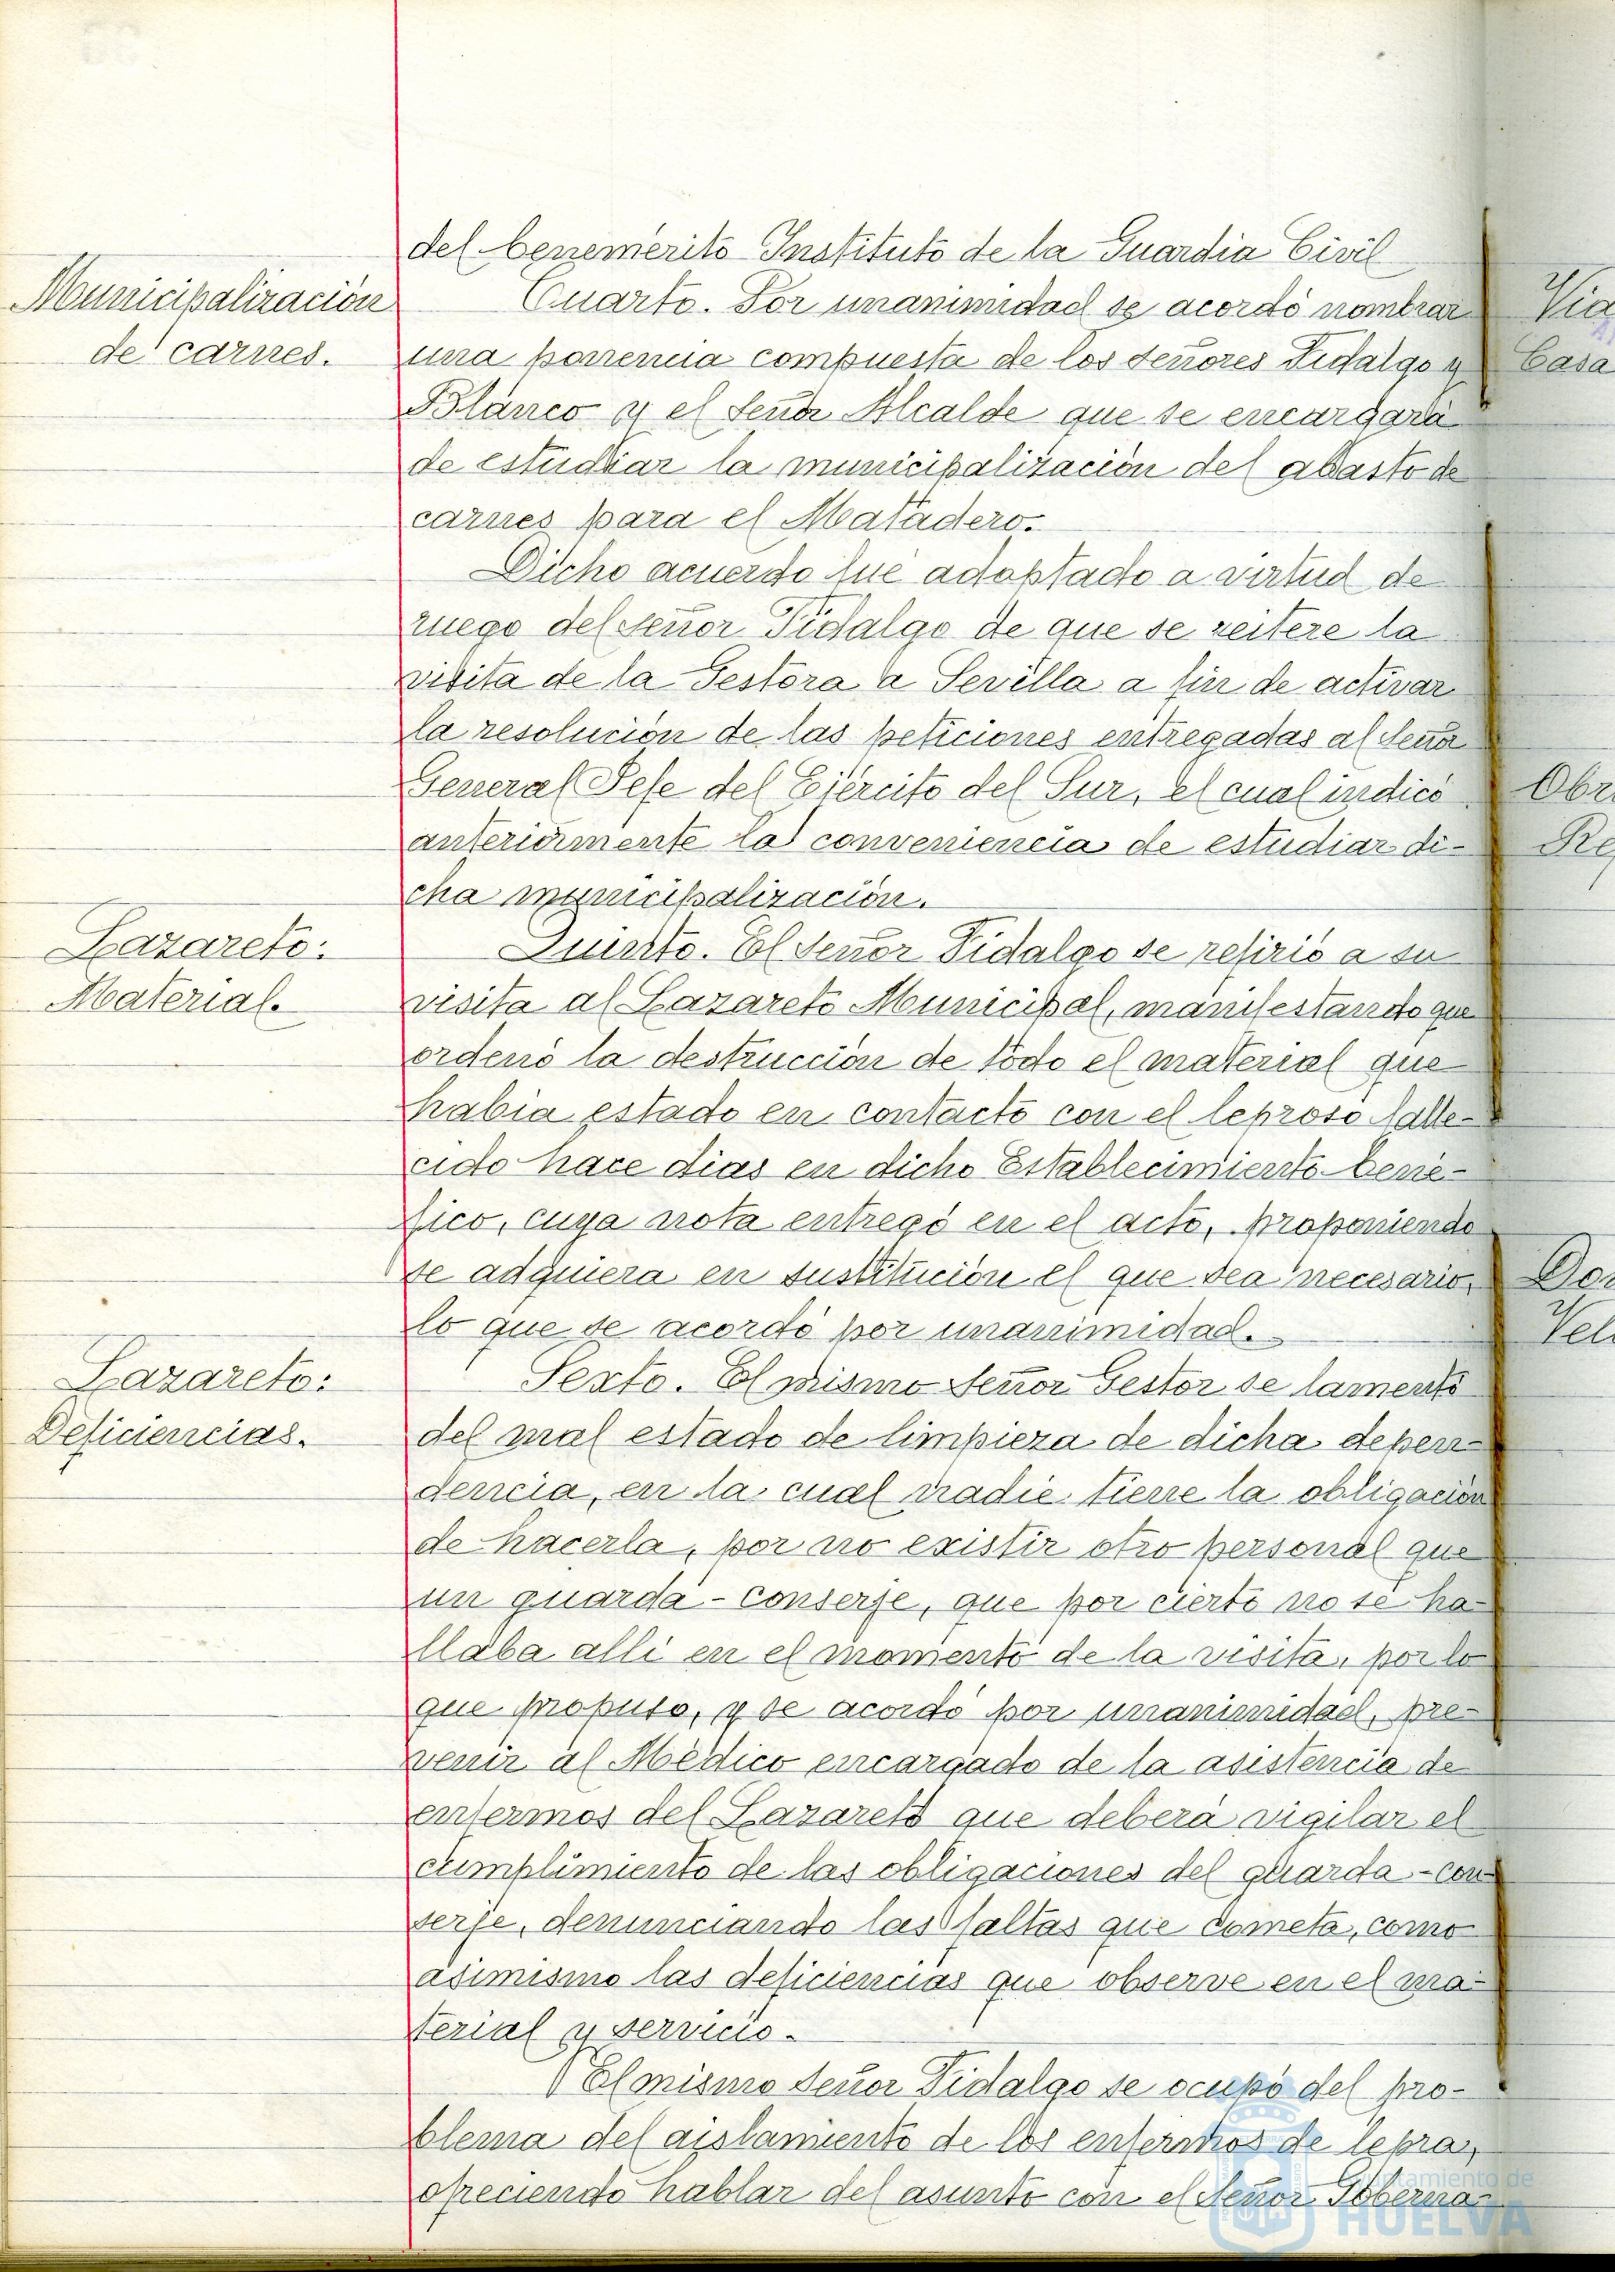 del benemérito Instituto de la Guardia Civil
Municipalización
de carnes.
Cuarto. Por unanimidad se acordó nombrar
una ponencia compuesta de los señores Fidalgo y
Blanco y el señor Alcalde que se encargará
de estudiar la municipalización del abasto de
carnes para el Matadero.
Dicho acuerdo fué adoptado a virtud de
ruego del señor Fidalgo de que se reitere la
visita de la Gestora a Sevilla a fin de activar
la resolución de las peticiones entregadas al señor
General Jefe del Ejército del Sur, el cual indicó
anteriormente la conveniencia de estudiar di-
cha municipalización.
Lazareto:
Material.
Quinto. El señor Fidalgo se refirió a su
visita al Lazareto Municipal, manifestando que
ordenó la destrucción de todo el material que
habia estado en contacto con el leproso falle-
cido hace dias en dicho Establecimiento bené-
fico, cuya nota entregó en el acto, proponiendo
se adquiera en sustitución el que sea necesario,
lo que se acordó por unanimidad.
Lazareto:
Deficiencias.
Sexto. El mismo señor Gestor se lamentó
del mal estado de limpieza de dicha depen-
dencia, en la cual nadie tiene la obligación
de hacerla, por no existir otro personal que
un guarda-conserje, que por cierto no se ha-
llaba alli en el momento de la visita, por lo
que propuso, y se acordó por unanimidad, pre-
venir al Médico encargado de la asistencia de
enfermos del Lazareto que deberá vigilar el
cumplimiento de las obligaciones del guarda-con-
serje, denunciando las faltas que cometa, como
asimismo las deficiencias que observe en el ma-
terial y servicio.
El mismo señor Fidalgo se ocupó del pro-
blema del aislamiento de los enfermos de lepra,
ofreciendo hablar del asunto con el señor Goberna-
Via
Casa
Obr
Re
Ayuntamiento de
HUELVA